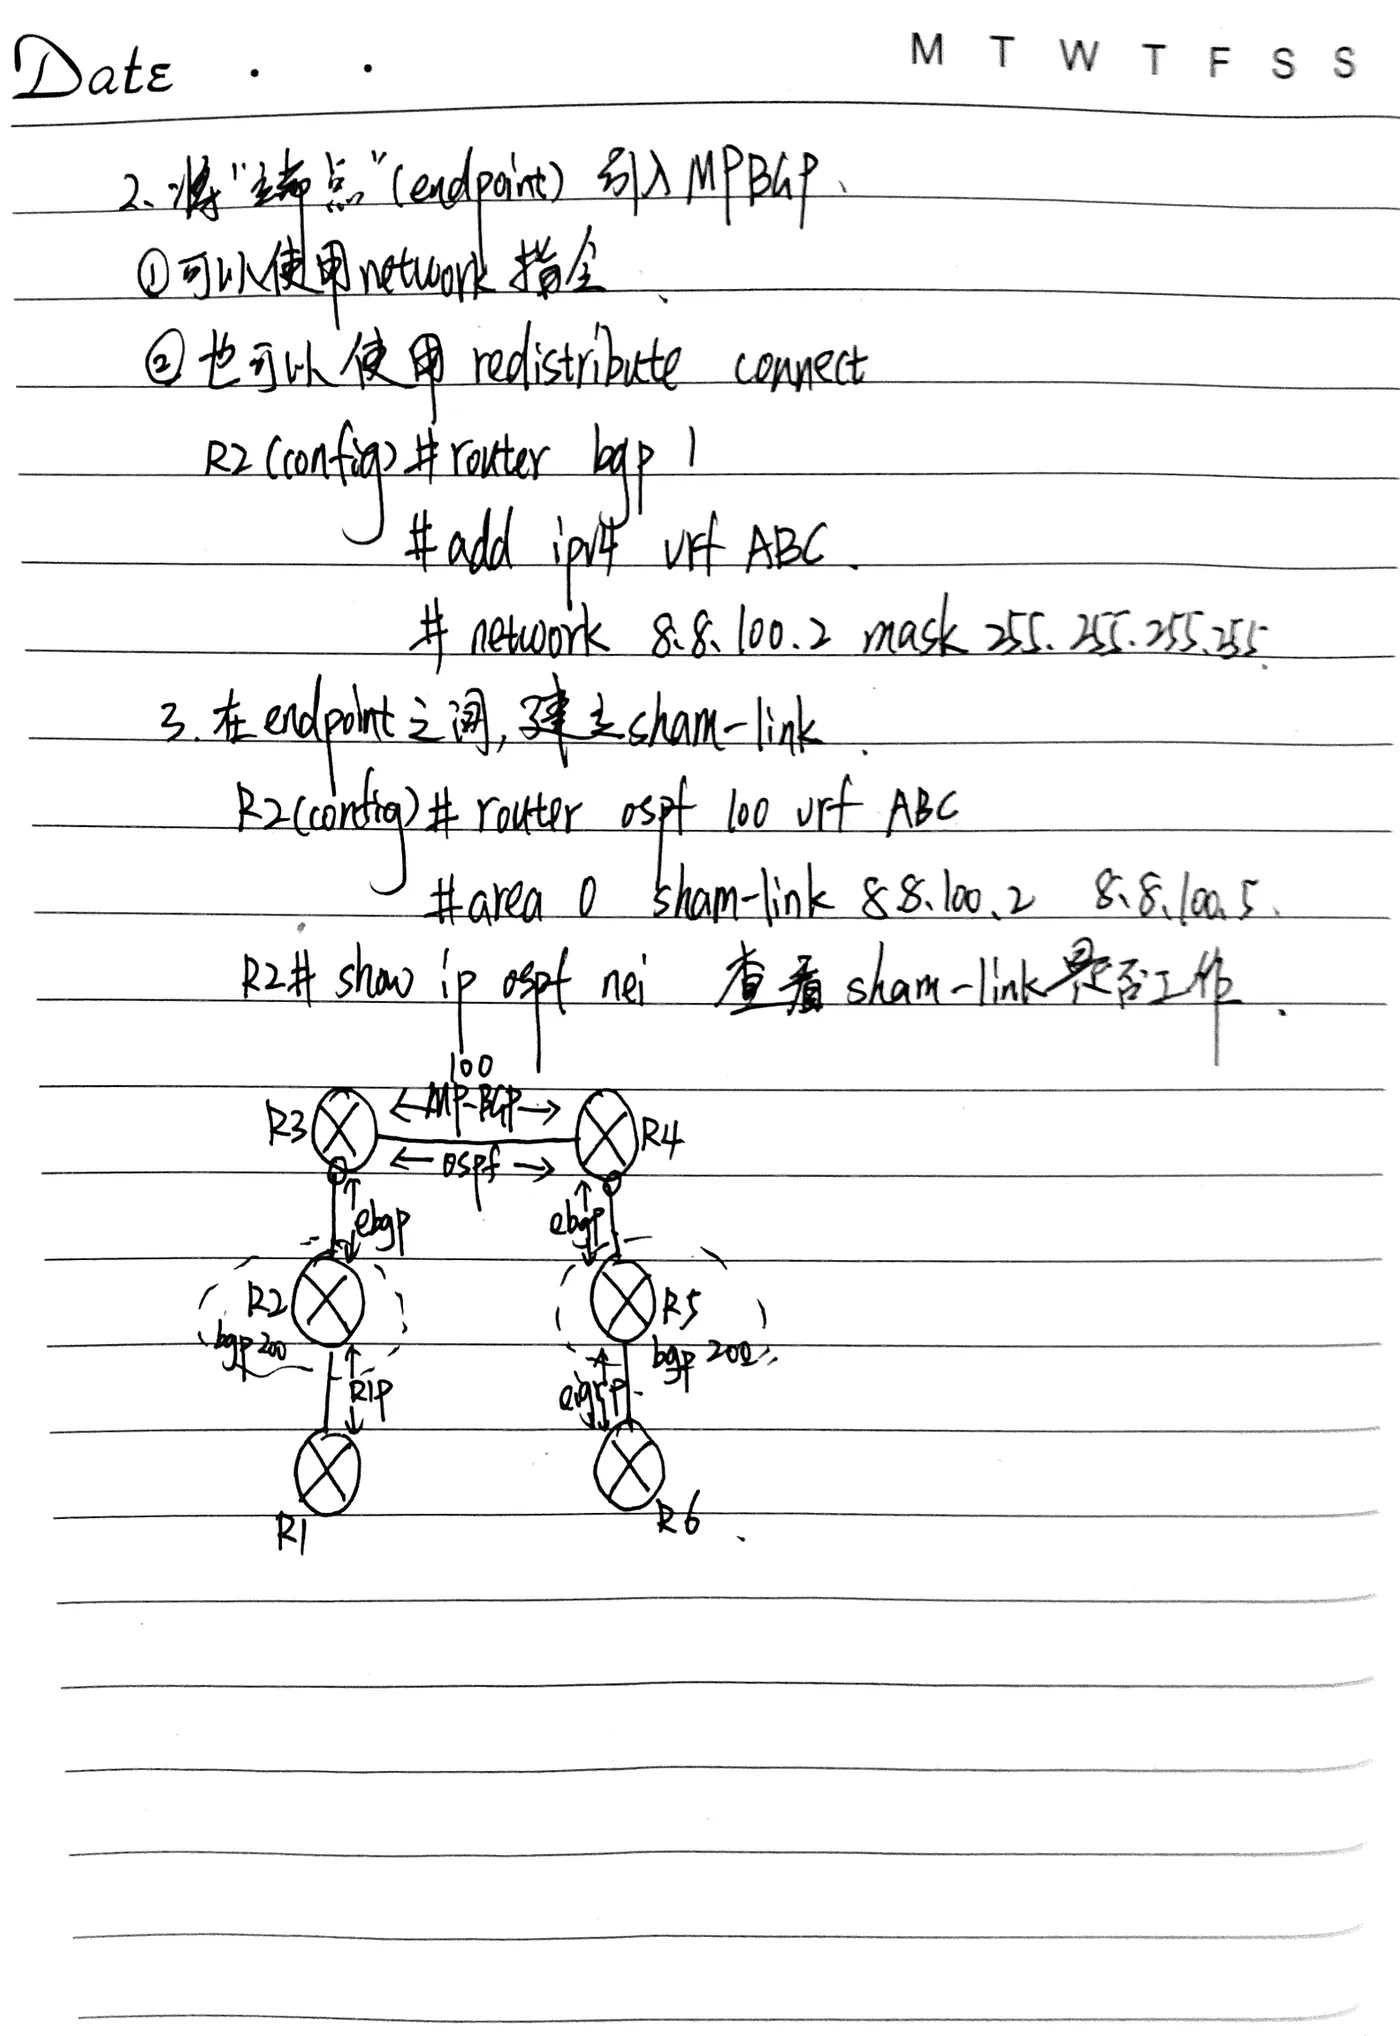 Date . .
M T W T F S S
2、将"端点"(endpoint) 引入MPBGP、
①可以使用network指令、
②也可以使用 redistribute connect
R2(config)#router bgp 1
#add ipv4 vrf ABC.
# network 8.8.100.2 mask 255.255.255.255.
3. 在endpoint之间,建立sham-link.
R2(config)# router ospf 100 vrf ABC
#area 0 sham-link 8.8.100.2 8.8.100.5.
R2# show ip ospf nei 查看sham-link是否工作.
100
R3 MP-BGP R4
ospf
ebgp ebgp
R2 R5
bgp200 bgp 200
RIP eigrp
R1 R6